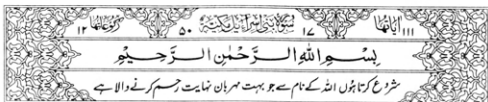 اٰیَاتُهَا ۱۱۱ ۱۷ سُوْرَةُ بَنِیْۤ اِسْرَآءِیْلَ مَکِّیَّةٌ ۵۰ رُکُوْعَاتُهَا ۱۲
بِسْمِ اللهِ الرَّحْمٰنِ الرَّحِیْمِ
شروع کرتا ہوں اللہ کے نام سے جو بہت مہربان نہایت رحم کرنے والا ہے